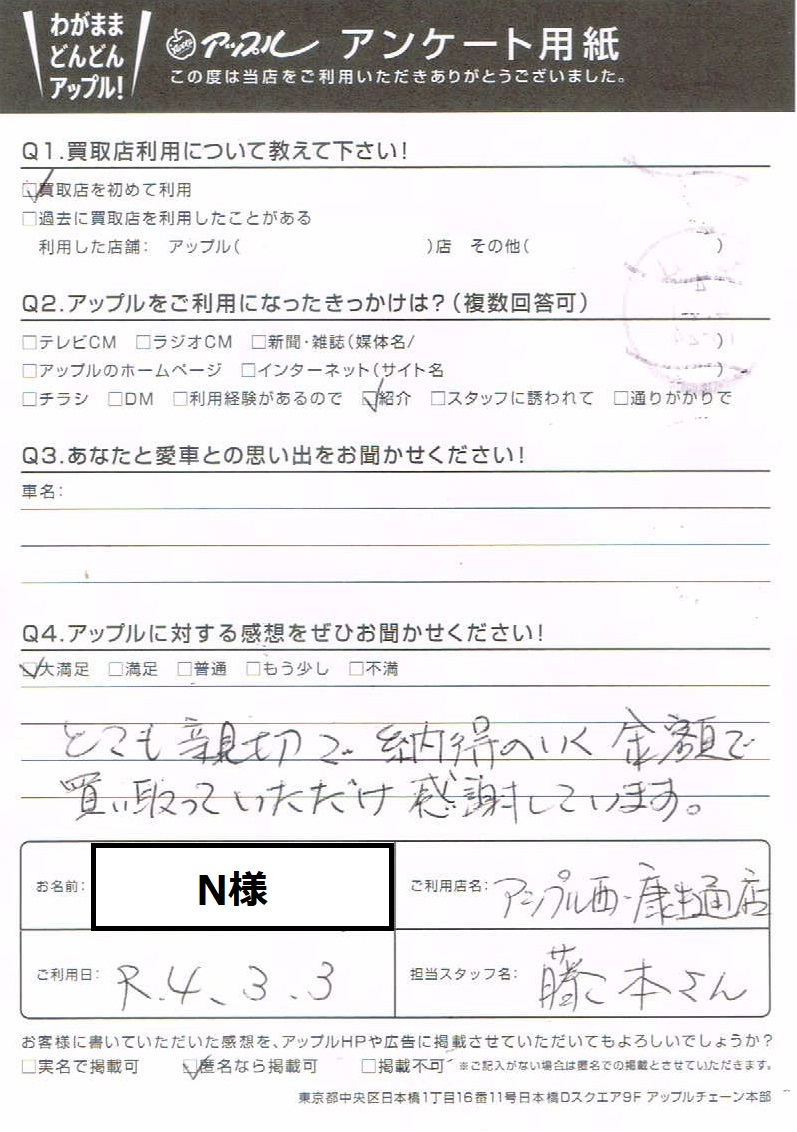 わがまま
どんどん
アップル!
アップル アンケート用紙
この度は当店をご利用いただきありがとうございました。
Q1.買取店利用について教えて下さい!
☑買取店を初めて利用
□過去に買取店を利用したことがある
利用した店舗: アップル( )店 その他( )
Q2.アップルをご利用になったきっかけは?(複数回答可)
□テレビCM □ラジオCM □新聞・雑誌(媒体名/ )
□アップルのホームページ □インターネット(サイト名 )
□チラシ □DM □利用経験があるので ☑紹介 □スタッフに誘われて □通りがかりで
Q3.あなたと愛車との思い出をお聞かせください!
車名:
Q4.アップルに対する感想をぜひお聞かせください!
☑大満足 □満足 □普通 □もう少し □不満
とても親切で納得のいく金額で
買い取っていただけ感謝しています。
お名前: N様
ご利用店名: アップル西・康生通店
ご利用日: R.4、3.3
担当スタッフ名: 藤本さん
お客様に書いていただいた感想を、アップルHPや広告に掲載させていただいてもよろしいでしょうか?
□実名で掲載可 ☑匿名なら掲載可 □掲載不可 ※ご記入がない場合は匿名での掲載とさせていただきます。
東京都中央区日本橋1丁目16番11号日本橋Dスクエア9F アップルチェーン本部